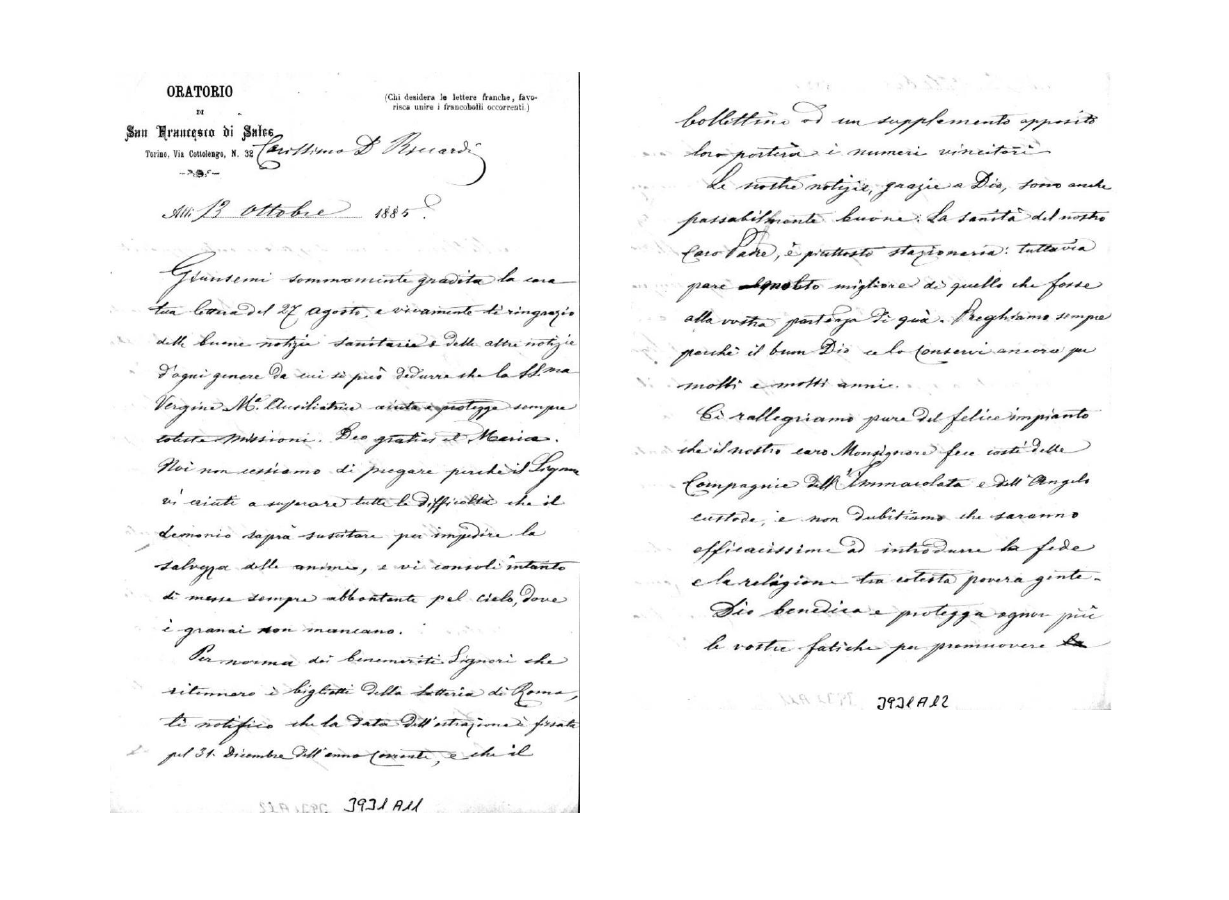 ORATORIO
DI
San Francesco di Sales
Torino, Via Cottolengo, N. 32
(Chi desidera le lettere franche, favo-
risca unire i francobolli occorrenti.)
Carissimo D Riccardi
Alli 13 Ottobre 1885
Giunsemi sommamente gradita la cara
tua lettera del 27 Agosto, e vivamente ti ringrazio
delle buone notizie sanitarie e delle altre notizie
d'ogni genere da cui si può dedurre che la SS.ma
Vergine Mª Ausiliatrice aiuta e protegge sempre
coteste Missioni. Deo gratias et Mariae.
Noi non cessiamo di pregare perchè il Signore
vi aiuti a superare tutte le difficoltà che il
demonio saprà suscitare per impedire la
salvezza delle anime, e vi consoli intanto
di messe sempre abbontante pel cielo, dove
i granai non mancano.
Per norma dei benemeriti Signori che
ritennero i biglietti della Lotteria di Roma,
ti notifico che la data dell'estrazione è fissata
pel 31. Dicembre dell'anno corrente, e che il
3931 A11
bollettino od un supplemento apposito
loro porterà i numeri vincitori
Le nostre notizie, grazie a Dio, sono anche
passabilmente buone. La sanità del nostro
Caro Padre, è piuttosto stazionaria: tuttavia
pare migliore di quello che fosse
alla vostra partenza di quà. Preghiamo sempre
perchè il buon Dio ce lo conservi ancora per
molti e molti anni.
Ci rallegriamo pure del felice impianto
che il nostro caro Monsignore fece costì delle
Compagnie dell'Immacolata e dell'Angelo
custode, e non dubitiamo che saranno
efficacissime ad introdurre la fede
e la religione tra cotesta povera gente.
Dio benedica e protegga ognor più
le vostre fatiche per promuovere la
3931 A12